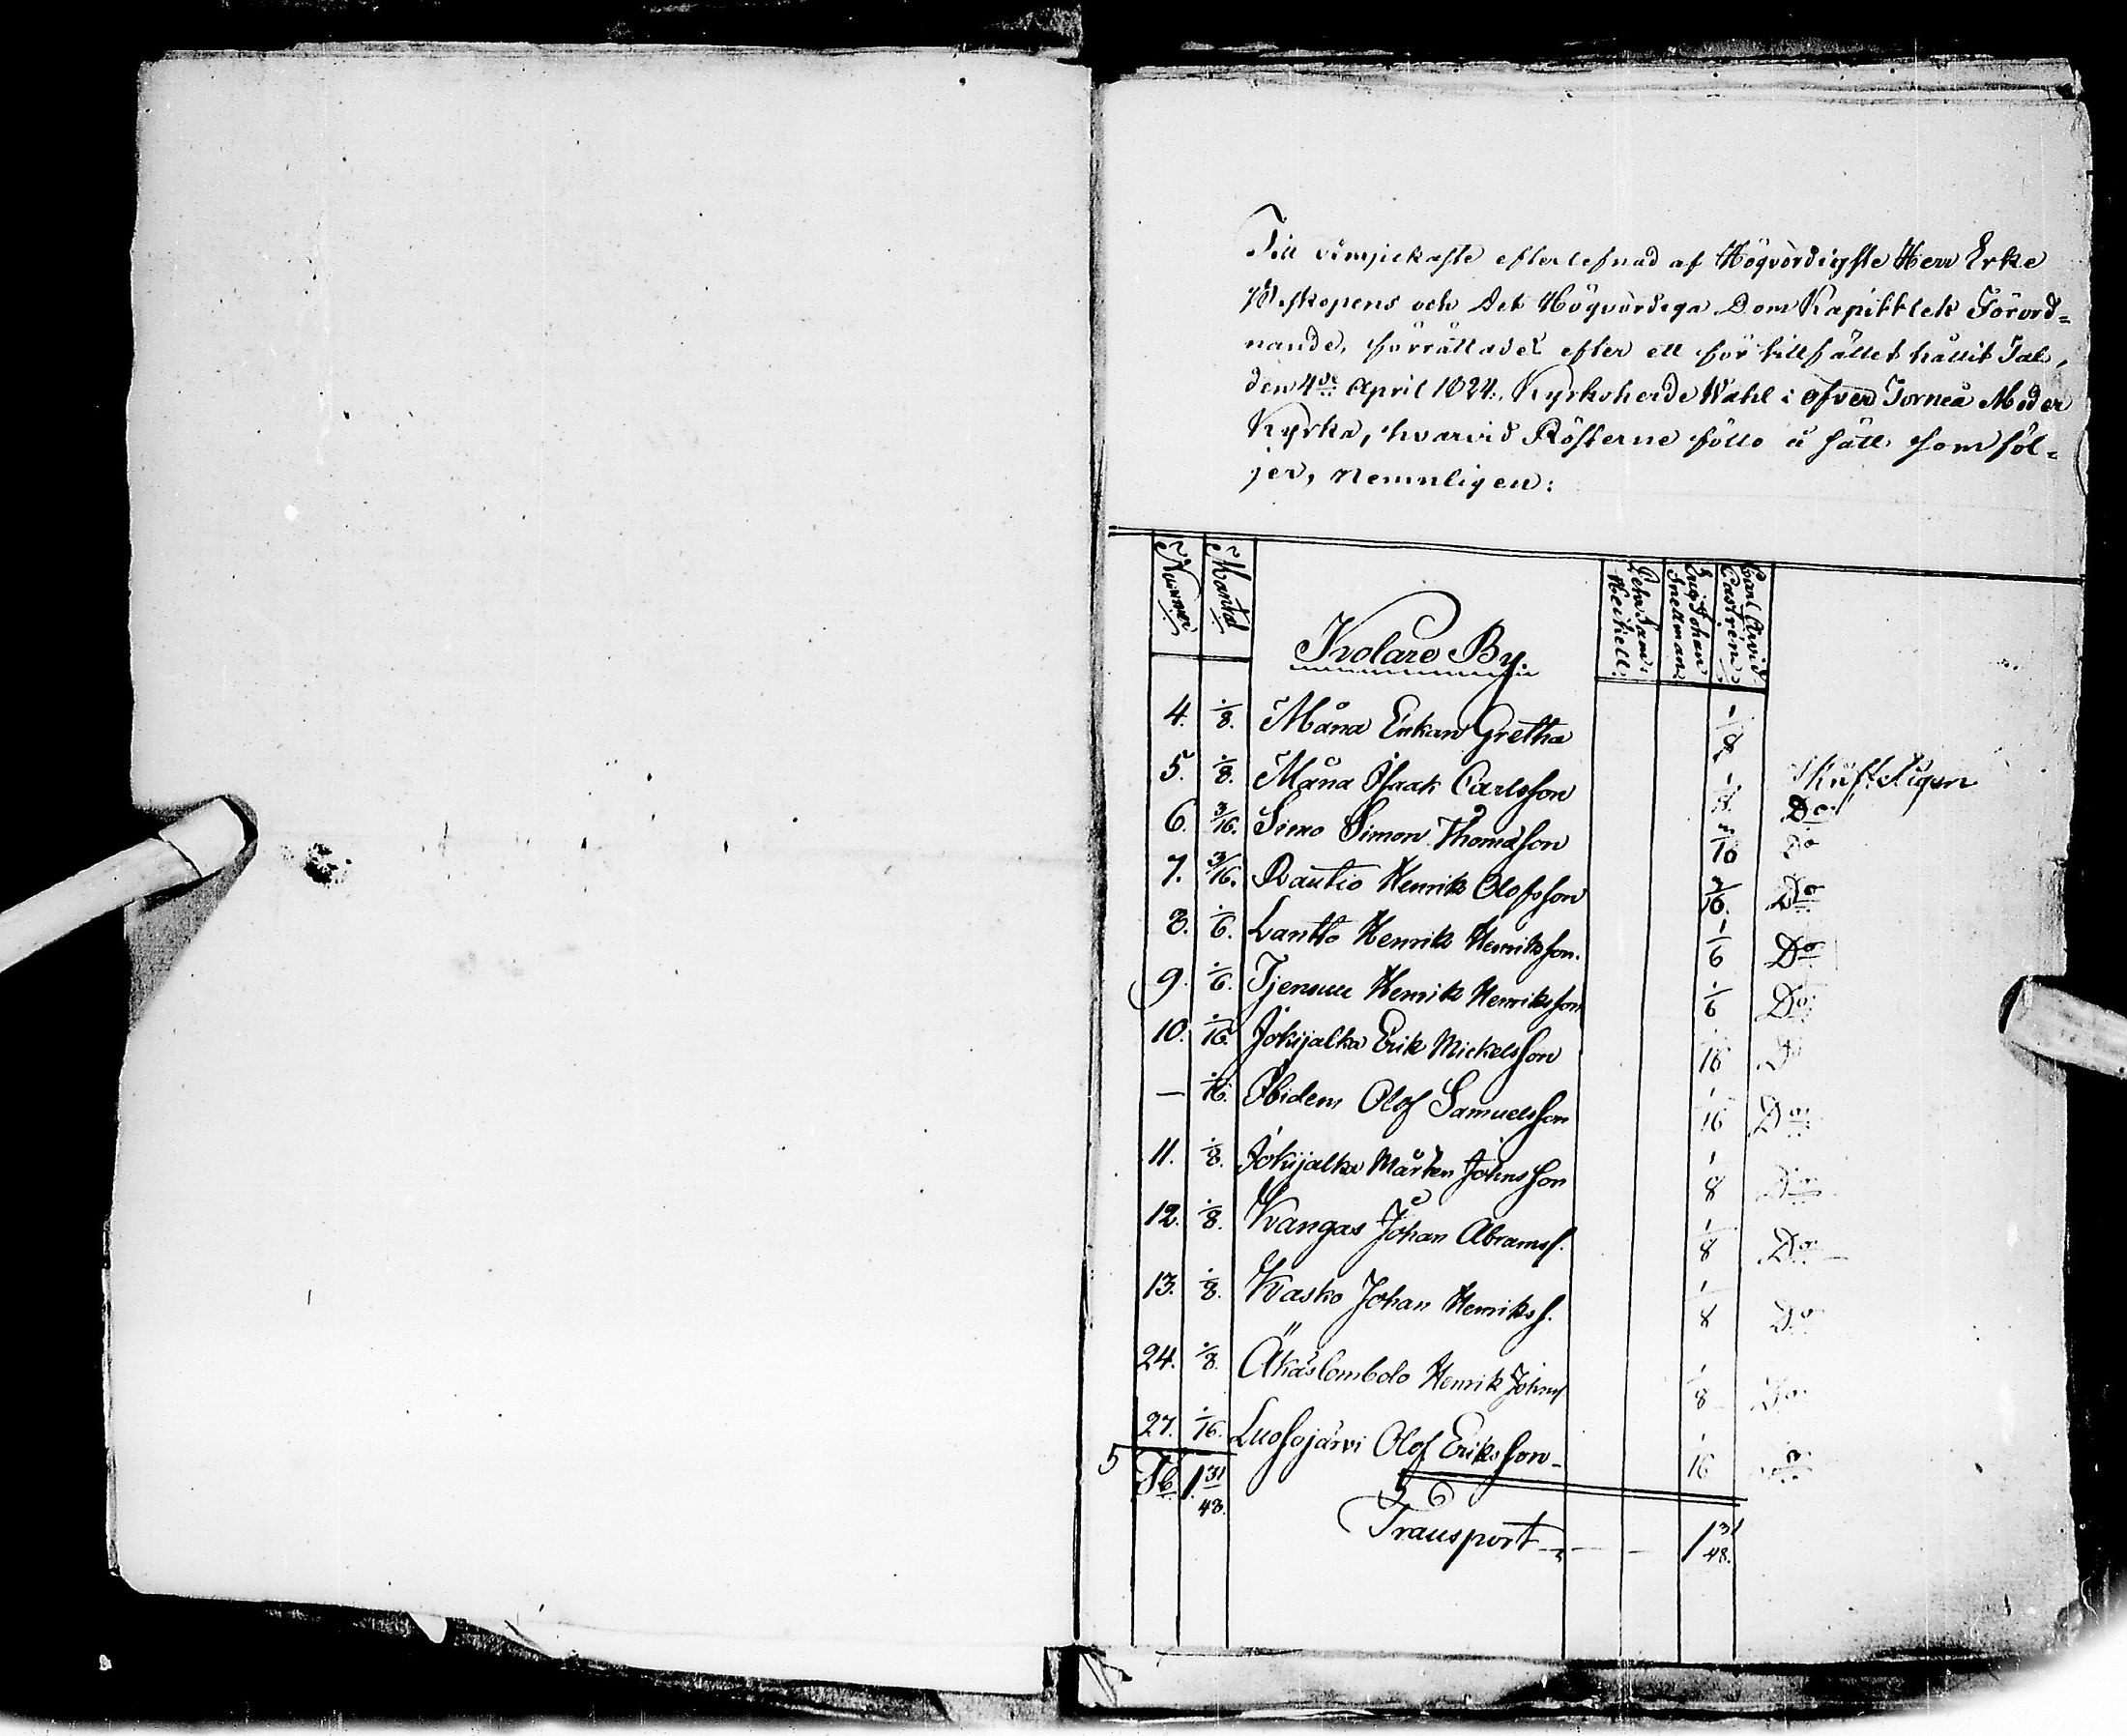 Till ödmjukaste efterlefnad af Högvördigste Herr Erke
Biskopens och Det Högvördiga Dom Kapittlets Förord=
nande, förrättades efter ett för tillfället hållit Tal,
den 4de April 1824, Kyrkoherde Wahl i Öfver Torneå Moder
Kyrka, hvarvid Rösterne föllo å sätt som föl=
jer, Nemnligen:
Nummer Mantal Kolare By. Pehr Sam: Heikell: Eric Johan Snellman Carl Arvid Castrén
4. 1/8. Måna Enkan Gretha 1/8
5. 1/8. Måna Isaak Carlsson 1/8. Skriftligen
6. 3/16. Simo Simon Thomasson 3/16 Do
7. 3/16. Rautio Henrik Olofsson 3/16. Do
8. 1/6. Lantto Henrik Henriksson. 1/6 Do
9. 1/6. Tjensuu Henrik Henriksson 1/6 Do
10. 1/16. Jokijalka Erik Mickelsson 1/16 Do
— 1/16. Ibidem Olof Samuelsson 1/16 Do
11. 1/8. Jokijalka Mårten Johnsson 1/8 Do
12. 1/8. Kangas Johan Abramss. 1/8 Do
13. 1/8. Vasko Johan Henrikss. 1/8 Do
24. 1/8. Äkäslombolo Henrik Johnss 1/8 Do
27. 1/16. Luosojärvi Olof Eriksson 1/16 Do
5 1 31/48. 5 6
Transport 1 31/48.